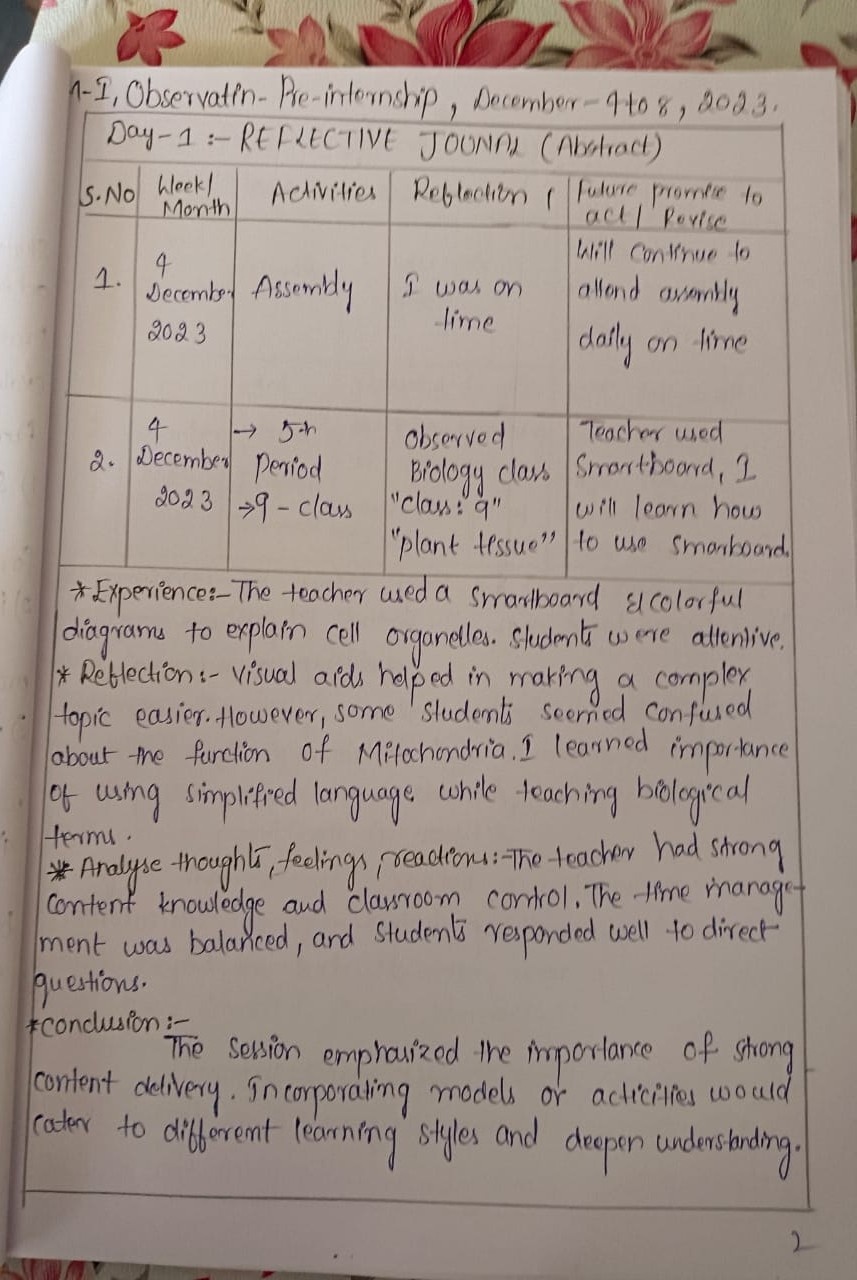 1-I, Observatin - Pre-internship, December - 4 to 8, 2023.
Day-1 :- REFLECTIVE JOUNAL (Abstract)
S.No Week/ Month Activities Reflection Future promise to act / Revise
1. 4 December 2023 Assembly I was on time Will continue to attend assembly daily on time
2. 4 December 2023 → 5th Period → 9 - class Observed Biology class "class: 9" "plant tissue" Teacher used Smartboard, I will learn how to use smartboard.
* Experience:- The teacher used a smartboard & colorful
diagrams to explain cell organelles. Students were attentive.
* Reflection :- visual aids helped in making a complex
topic easier. However, some students seemed confused
about the function of Mitochondria. I learned importance
of using simplified language while teaching biological
terms.
* Analyse thoughts, feelings, reactions:- The teacher had strong
Content knowledge and classroom control. The time manage-
ment was balanced, and students responded well to direct
questions.
* conclusion :-
The session emphasized the importance of strong
content delivery. Incorporating models or acticities would
cater to different learning styles and deepen understanding.
2